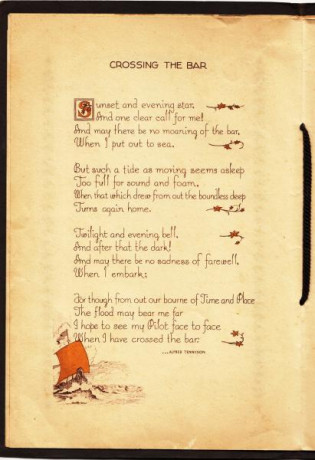 CROSSING THE BAR
Sunset and evening star,
And one clear call for me!
And may there be no moaning of the bar,
When I put out to sea.
But such a tide as moving seems asleep
Too full for sound and foam,
When that which drew from out the boundless deep
Turns again home.
Twilight and evening bell,
And after that the dark!
And may there be no sadness of farewell,
When I embark;
For though from out our bourne of Time and Place
The flood may bear me far
I hope to see my Pilot face to face
When I have crossed the bar.
...ALFRED TENNYSON